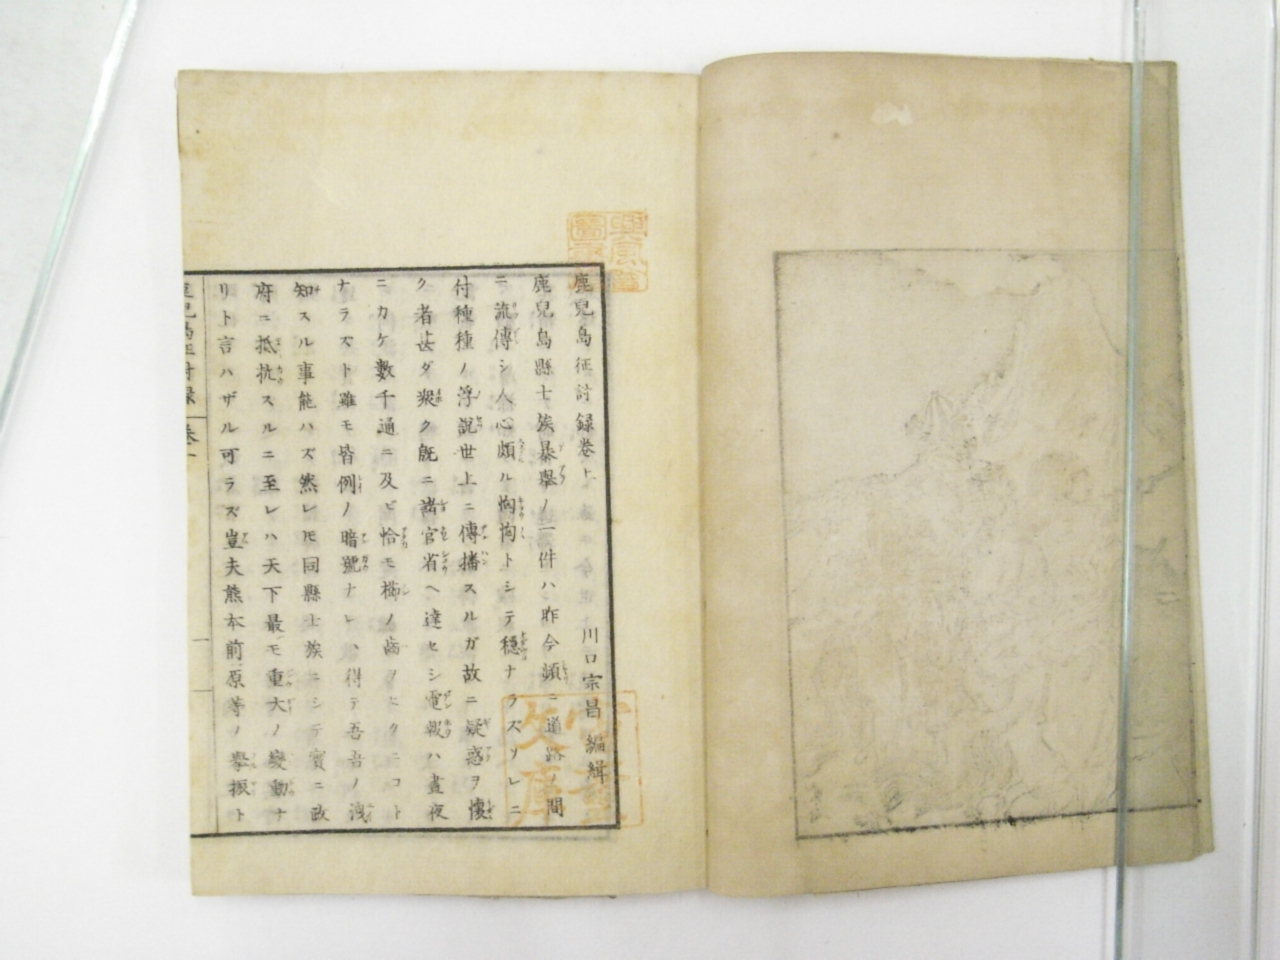 鹿兒島征討録卷上
川口宗昌編緝
鹿兒島縣士族暴擧ノ一件ハ昨今頻ニ道路ノ間
ニ流傳シ人心頗ル恟恟トシテ穩ナラズソレニ
付種種ノ浮説世上ニ傳播スルガ故ニ疑惑ヲ懷
ク者甚ダ衆ク既ニ諸官省ヘ達セシ電報ハ晝夜
ニカケ數千通ニ及ビ恰モ櫛ノ齒ヲヒクニコト
ナラズト雖モ皆例ノ暗號ナレハ得テ吾吾ノ洩
知スル事能ハズ然レ𪜈同縣士族ニシテ實ニ政
府ニ抵抗スルニ至レハ天下最モ重大ノ變動ナ
リト言ハザル可ラズ豈夫熊本前原等ノ擧振ト
鹿兒島征討録 卷
一
文庫